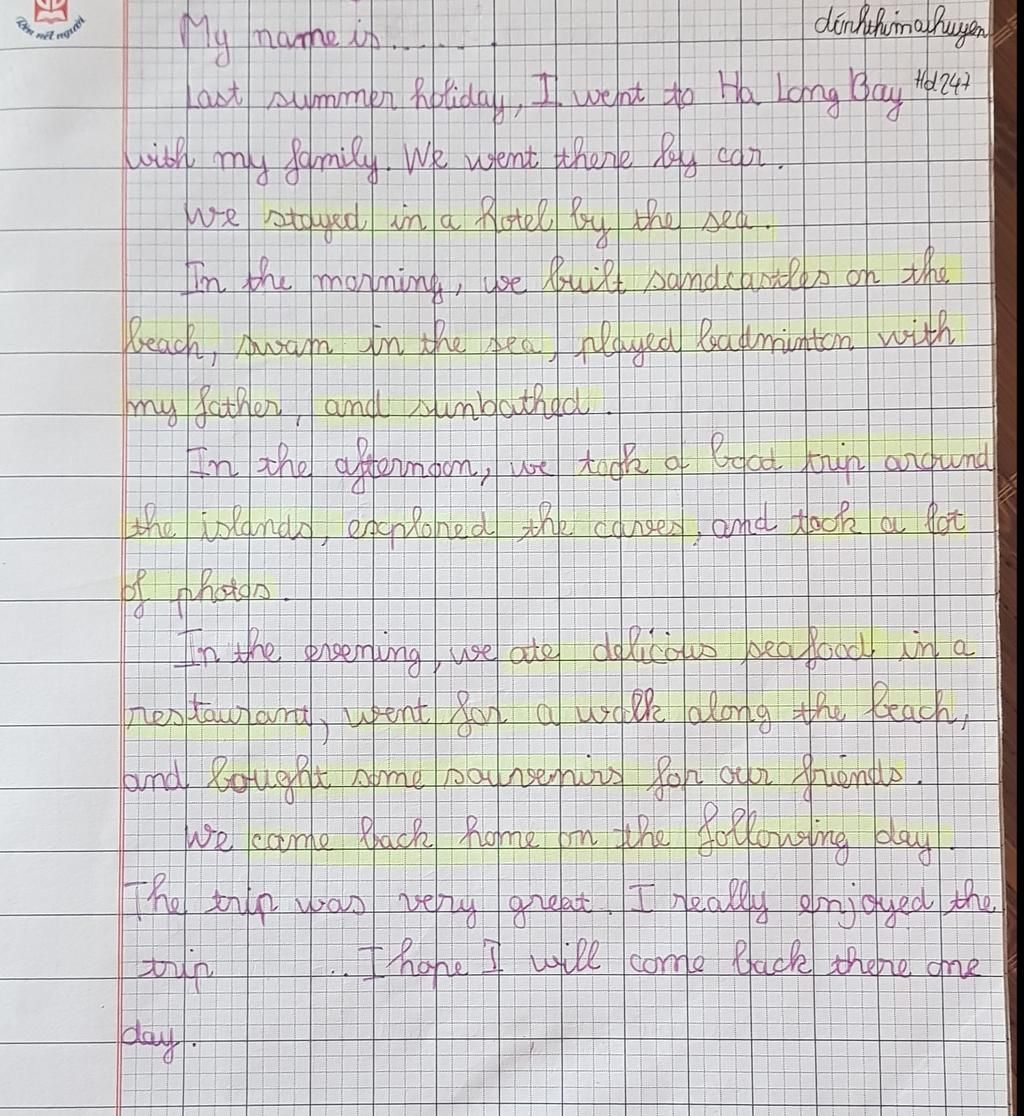 Rèn nét người
dinhthimaihuyen
My name is..........
Last summer holiday, I went to Ha Long Bay Hd247
with my family. We went there by car.
We stayed in a hotel by the sea.
In the morning, we built sandcastles on the
beach, swam in the sea, played badminton with
my father, and sunbathed.
In the afternoon, we took a boad trip around
the islands, explored the caves, and took a lot
of photos.
In the evening, we ate delicous seafood in a
restaurant, went for a walk along the beach,
and bought some sourvenirs for our friends.
We came back home on the following day.
The trip was very great. I really enjoyed the
trip .. I hope I will come back there one
day.